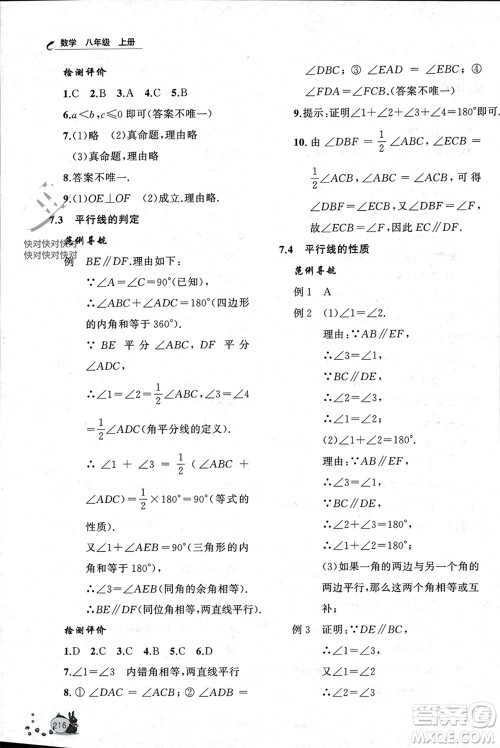 数学 八年级 上册
检测评价
1.C 2.B 3.A 4.C 5.B
6.a<b,c≤0即可(答案不唯一)
7.(1)略 (2)真命题,理由略
(3)真命题,理由略
8.答案不唯一.
9.(1)OE⊥OF (2)成立.理由略
7.3 平行线的判定
快对快对快对
快对快对快对
范例导航
例 BE∥DF.理由如下:
∵∠A=∠C=90°(已知)
∴∠ABC+∠ADC=180°(四边形
的内角和等于360°)
∵ BE 平分 ∠ABC,DF 平分
∠ADC,
∴∠1=∠2=1/2∠ABC,∠3=∠4
=1/2∠ADC(角平分线的定义)
∴∠1+∠3=1/2(∠ABC+
∠ADC)=1/2×180°=90°(等式的
性质).
又∠1+∠AEB=90°(三角形的
内角和等于180°)
∴∠3=∠AEB(同角的余角相等)
∴BE∥DF(同位角相等,两直线平行).
检测评价
1.D 2.C 3.D 4.D 5.C 6.A
7.∠1=∠3 内错角相等,两直线平行
8.∠DAC=∠ACB ∠ADB=
216
∠DBC ∠FAC=∠BCE
∠FDA=∠FCB.(答案不唯一)
9.提示:证明∠1+∠2+∠3=180°即可.
10.由∠DBF=1/2∠ABC,∠ECB=
1/2∠ACB,∠ABC=∠ACB,得
∠DBF=∠ECB.又∠DBF=∠F,
故∠F=∠ECB,从而EC∥DF.
7.4 平行线的性质
范例导航
例1 A
例2 (1)∠1=∠2.
理由:∵AB∥EF,
∴∠3=∠1,
∵BC∥DE,
∴∠3=∠2,
∴∠1=∠2.
(2)∠1+∠2=180°.
理由:∵AB∥EF,
∴∠1=∠3,
∵BC∥DE,
∴∠2+∠3=180°,
∴∠1+∠2=180°.
(3)如果一角的两边与另一角的
两边平行,则这两角相等或互
补;
例3 证明:∵∠1=∠2,
∴AE∥DF,
∴∠AEC=∠D,
答案圈
MXQE.COM